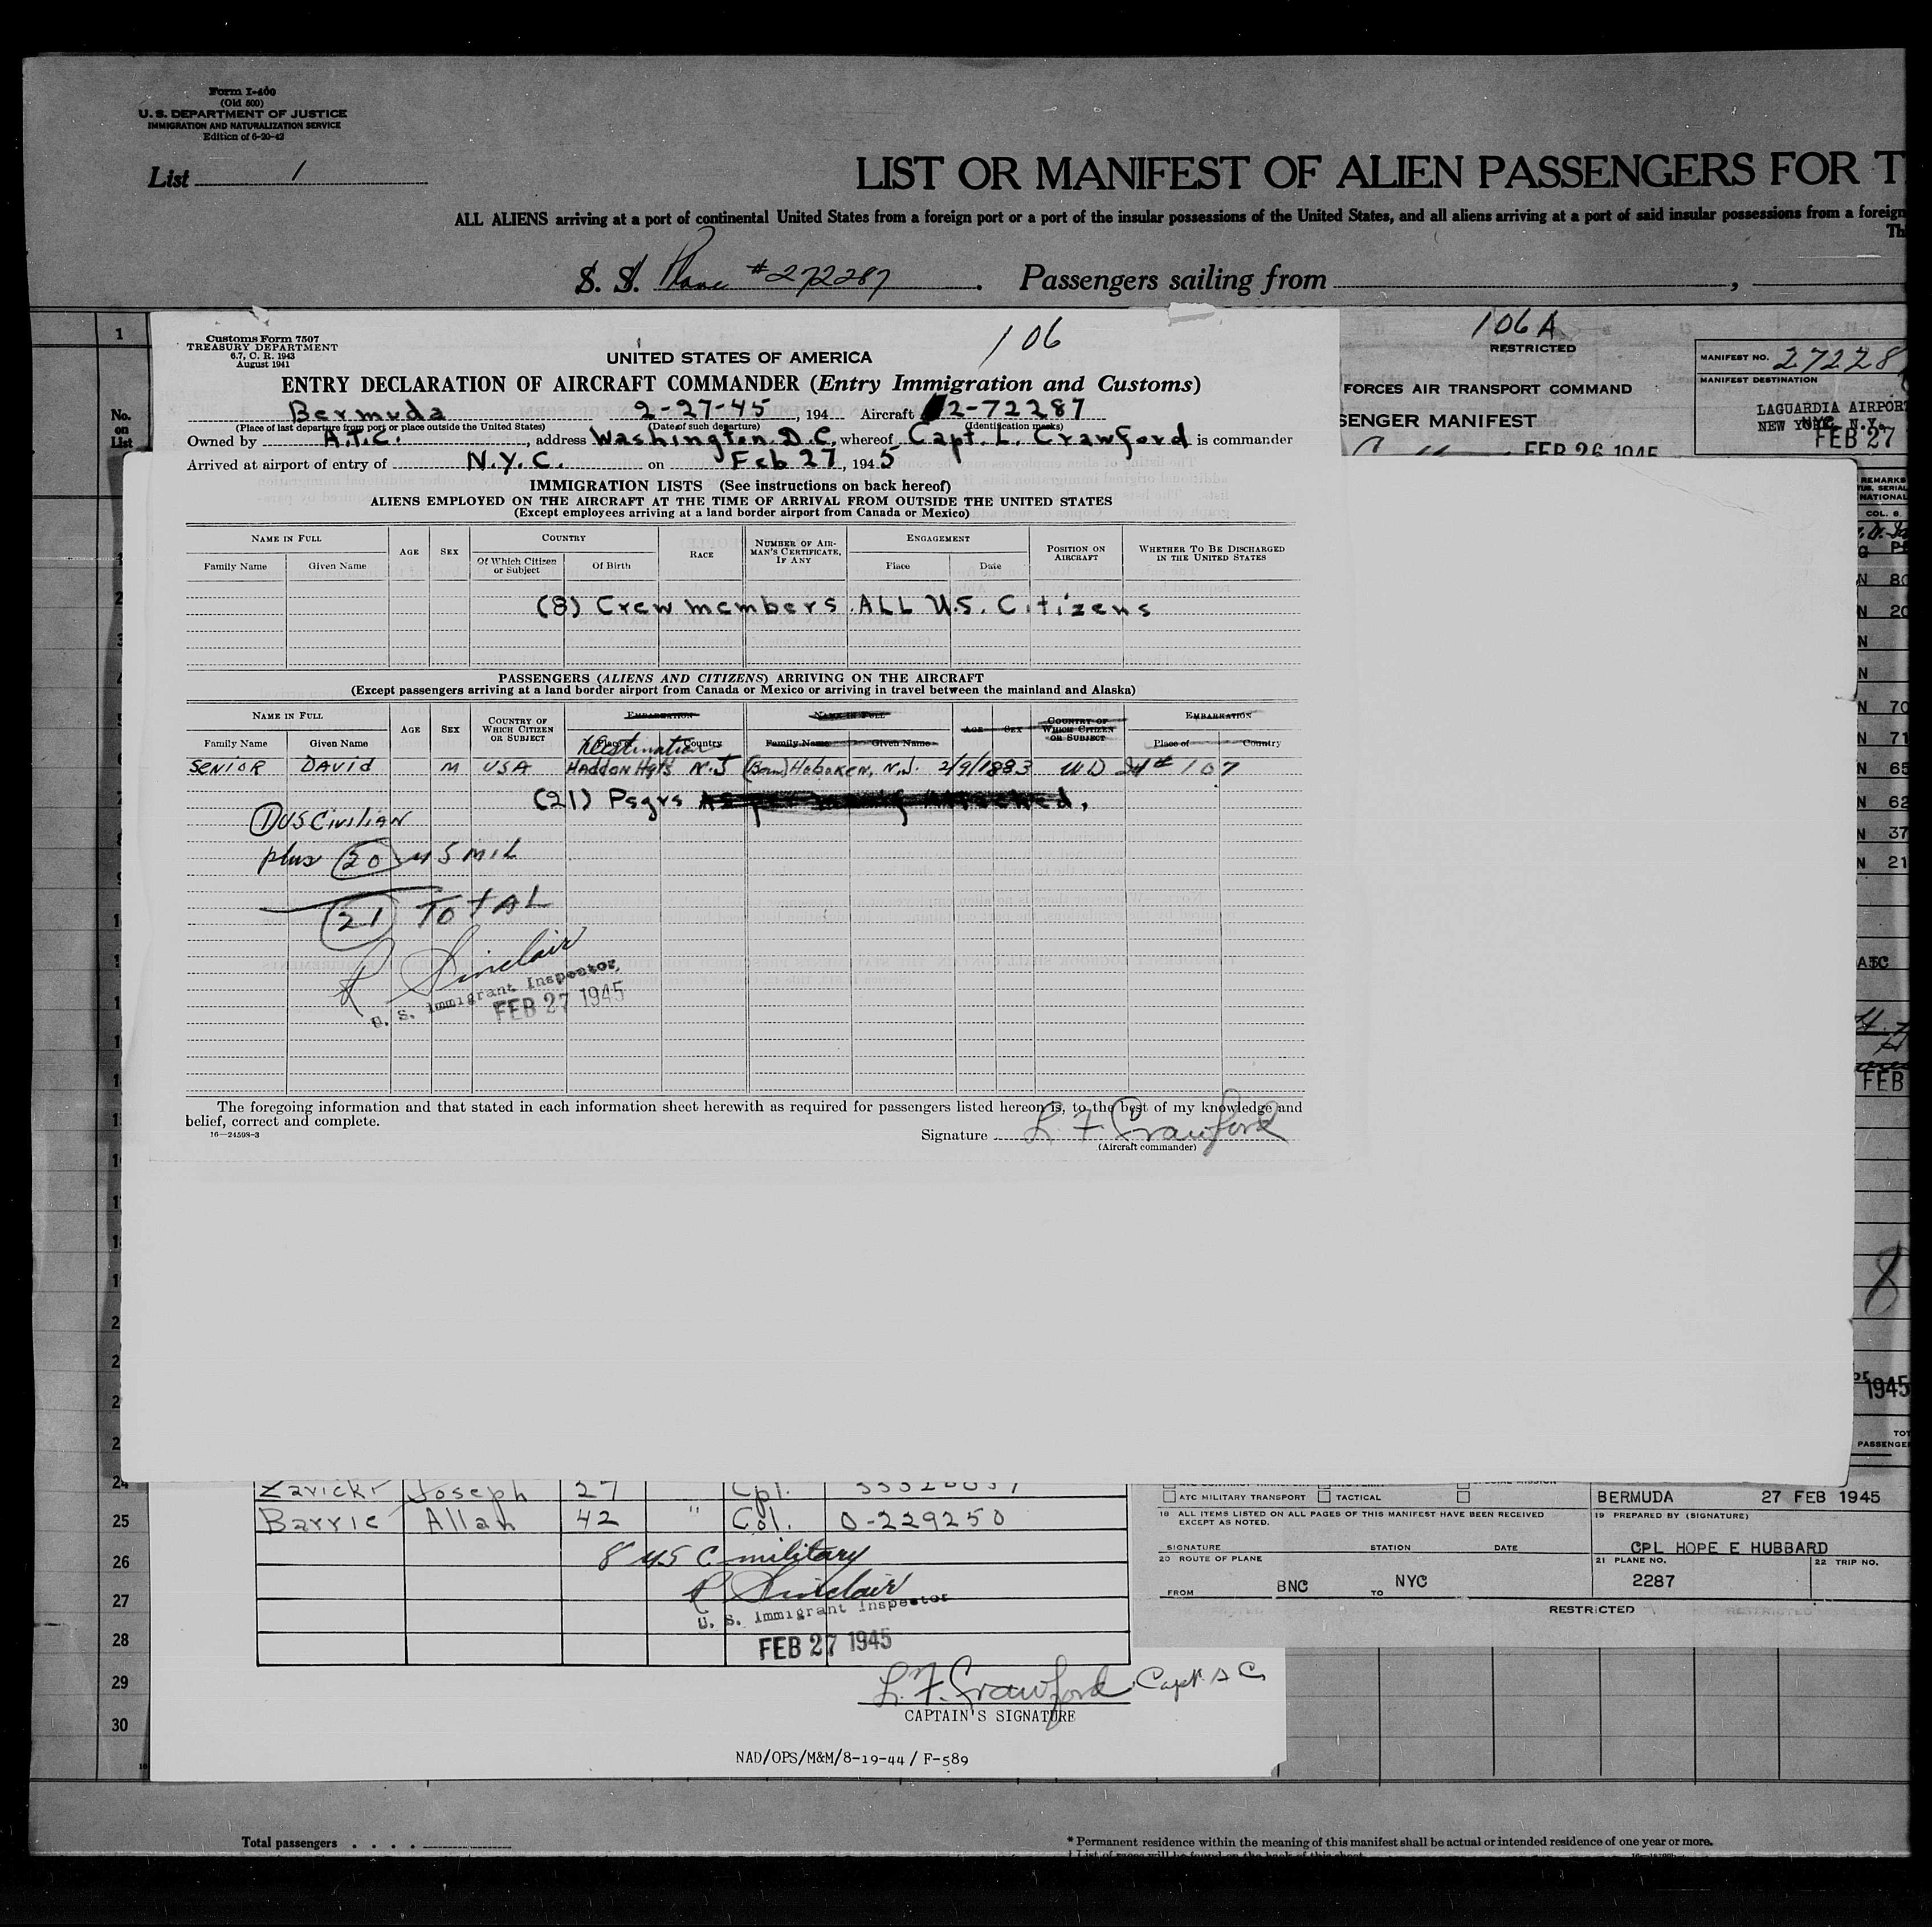 Form I-400
(Old 500)
U. S. DEPARTMENT OF JUSTICE
IMMIGRATION AND NATURALIZATION SERVICE
Edition of 6-20-42
List 1
LIST OR MANIFEST OF ALIEN PASSENGERS FOR T
ALL ALIENS arriving at a port of continental United States from a foreign port or a port of the insular possessions of the United States, and all aliens arriving at a port of said insular possessions from a foreign
Th
S. S. Plane #272287. Passengers sailing from ,
1
No.
on
List
Customs Form 7507
TREASURY DEPARTMENT
6.7, C. R. 1943
August 1941
106
UNITED STATES OF AMERICA
ENTRY DECLARATION OF AIRCRAFT COMMANDER (Entry Immigration and Customs)
Bermuda 2-27-45, 194 Aircraft 2-72287
(Place of last departure from port or place outside the United States) (Date of such departure) (Identification marks)
Owned by A.T.C., address Washington D.C. whereof Capt. L. Crawford is commander
Arrived at airport of entry of N.Y.C. on Feb 27, 1945
IMMIGRATION LISTS (See instructions on back hereof)
ALIENS EMPLOYED ON THE AIRCRAFT AT THE TIME OF ARRIVAL FROM OUTSIDE THE UNITED STATES
(Except employees arriving at a land border airport from Canada or Mexico)
NAME IN FULL AGE SEX COUNTRY RACE NUMBER OF AIRMAN'S CERTIFICATE, IF ANY ENGAGEMENT POSITION ON AIRCRAFT WHETHER TO BE DISCHARGED IN THE UNITED STATES
Family Name Given Name Of Which Citizen or Subject Of Birth Place Date
(8) Crew members ALL U.S. Citizens
PASSENGERS (ALIENS AND CITIZENS) ARRIVING ON THE AIRCRAFT
(Except passengers arriving at a land border airport from Canada or Mexico or arriving in travel between the mainland and Alaska)
NAME IN FULL AGE SEX COUNTRY OF WHICH CITIZEN OR SUBJECT EMBARKATION NAME IN FULL AGE SEX COUNTRY OF WHICH CITIZEN OR SUBJECT EMBARKATION
Family Name Given Name Place Country Family Name Given Name Place of Country
Destination
SENIOR DAVID M USA HADDON Hgts N.J (Born) Hoboken, N.J. 2/9/1883 WD # 107
(21) Psgrs
(1) US CIVILIAN
plus (20) US MIL
(21) TOTAL
R Sinclair
U. S. Immigrant Inspector
FEB 27 1945
The foregoing information and that stated in each information sheet herewith as required for passengers listed hereon is, to the best of my knowledge and
belief, correct and complete.
16—24598-3
Signature L F Crawford
(Aircraft commander)
106 A
RESTRICTED
FORCES AIR TRANSPORT COMMAND
SENGER MANIFEST
FEB 26 1945
MANIFEST NO. 27228
MANIFEST DESTINATION
LAGUARDIA AIRPORT
NEW YORK, N.Y.
FEB 27
REMARKS
NATIONAL
COL. 8.
N 80
N 20
N
N
N 70
N 71
N 65
N 62
N 37
N 21
FEB
8
1945
TOT
PASSENGE
24 Zavickr Joseph 27 Cpl.
25 Barrie Allan 42 " Col. O-229250
26 8 US C military
R Sinclair
27 U. S. Immigrant Inspector
28 FEB 27 1945
29 L. F. Crawford Capt. A C
CAPTAIN'S SIGNATURE
30
NAD/OPS/M&M/8-19-44 / F-589
ATC MILITARY TRANSPORT TACTICAL
BERMUDA 27 FEB 1945
18 ALL ITEMS LISTED ON ALL PAGES OF THIS MANIFEST HAVE BEEN RECEIVED
EXCEPT AS NOTED.
19 PREPARED BY (SIGNATURE)
SIGNATURE STATION DATE
CPL HOPE E HUBBARD
20 ROUTE OF PLANE 21 PLANE NO. 22 TRIP NO.
FROM BNC TO NYC 2287
RESTRICTED
Total passengers . . . .
* Permanent residence within the meaning of this manifest shall be actual or intended residence of one year or more.
† List of races will be found on the back of this sheet.